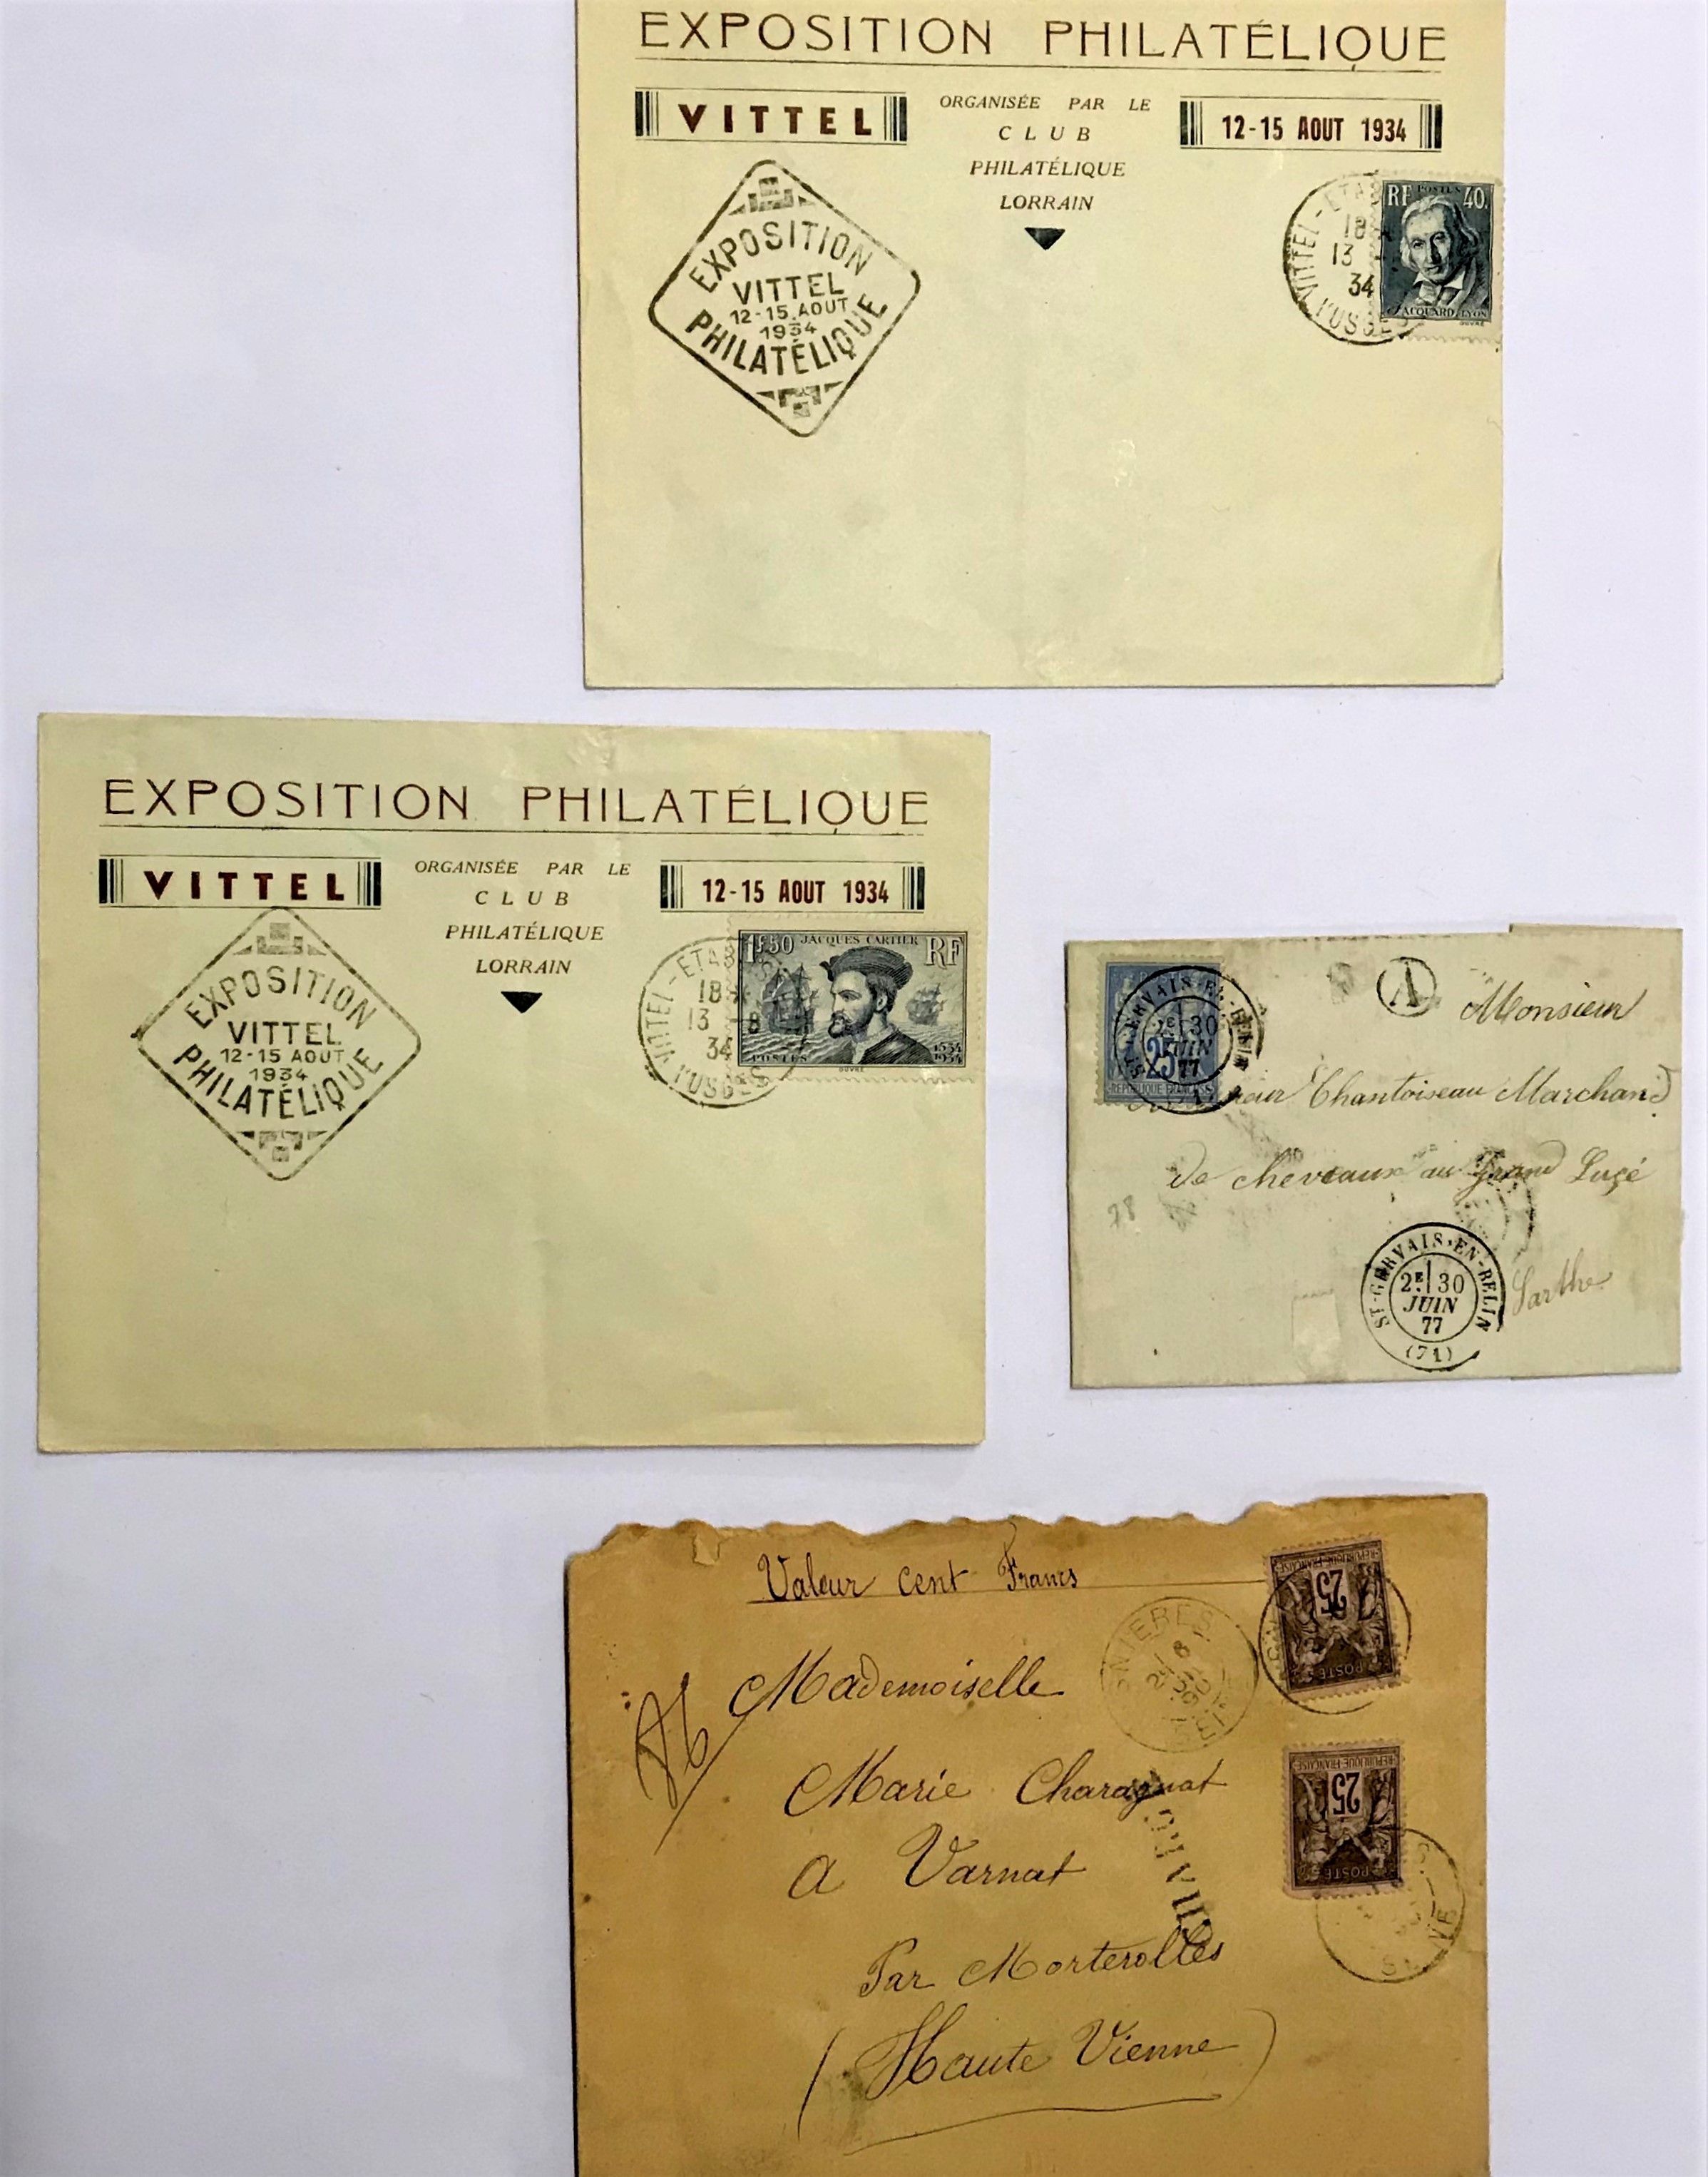 EXPOSITION PHILATÉLIQUE
VITTEL
ORGANISÉE PAR LE
CLUB
PHILATÉLIQUE
LORRAIN
12-15 AOUT 1934
EXPOSITION
VITTEL
12-15 AOUT
1934
PHILATÉLIQUE
VITTEL-ETA
18
13
34
RF POSTES 40
JACQUARD LYON
EXPOSITION PHILATÉLIQUE
VITTEL
ORGANISÉE PAR LE
CLUB
PHILATÉLIQUE
LORRAIN
12-15 AOUT 1934
EXPOSITION
VITTEL
12-15 AOUT
1934
PHILATÉLIQUE
VITTEL-ETAB
18
13 -8
34
1F50 JACQUES CARTIER RF
POSTES
1534
1934
A
Monsieur
Chantoiseau Marchand
de cheveaux au Grand Luçé
Sarthe
78
30
JUIN
77
25
REPUBLIQUE FRANCAISE
ST-GERVAIS-EN-BELIN
2E 30
JUIN
77
(71)
Valeur cent Francs
Mademoiselle
Marie Charagnat
a Varnat
Par Morterolles
(Haute Vienne)
25
REPUBLIQUE FRANCAISE
POSTES
25
REPUBLIQUE FRANCAISE
POSTES